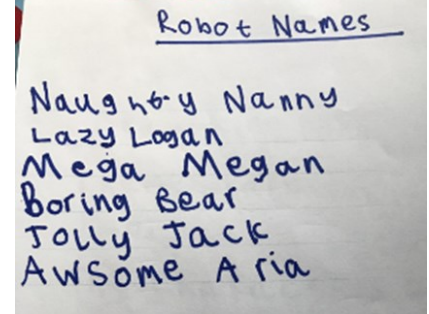 Robot Names
Naughty Nanny
Lazy Logan
Mega Megan
Boring Bear
Jolly Jack
Awsome Aria